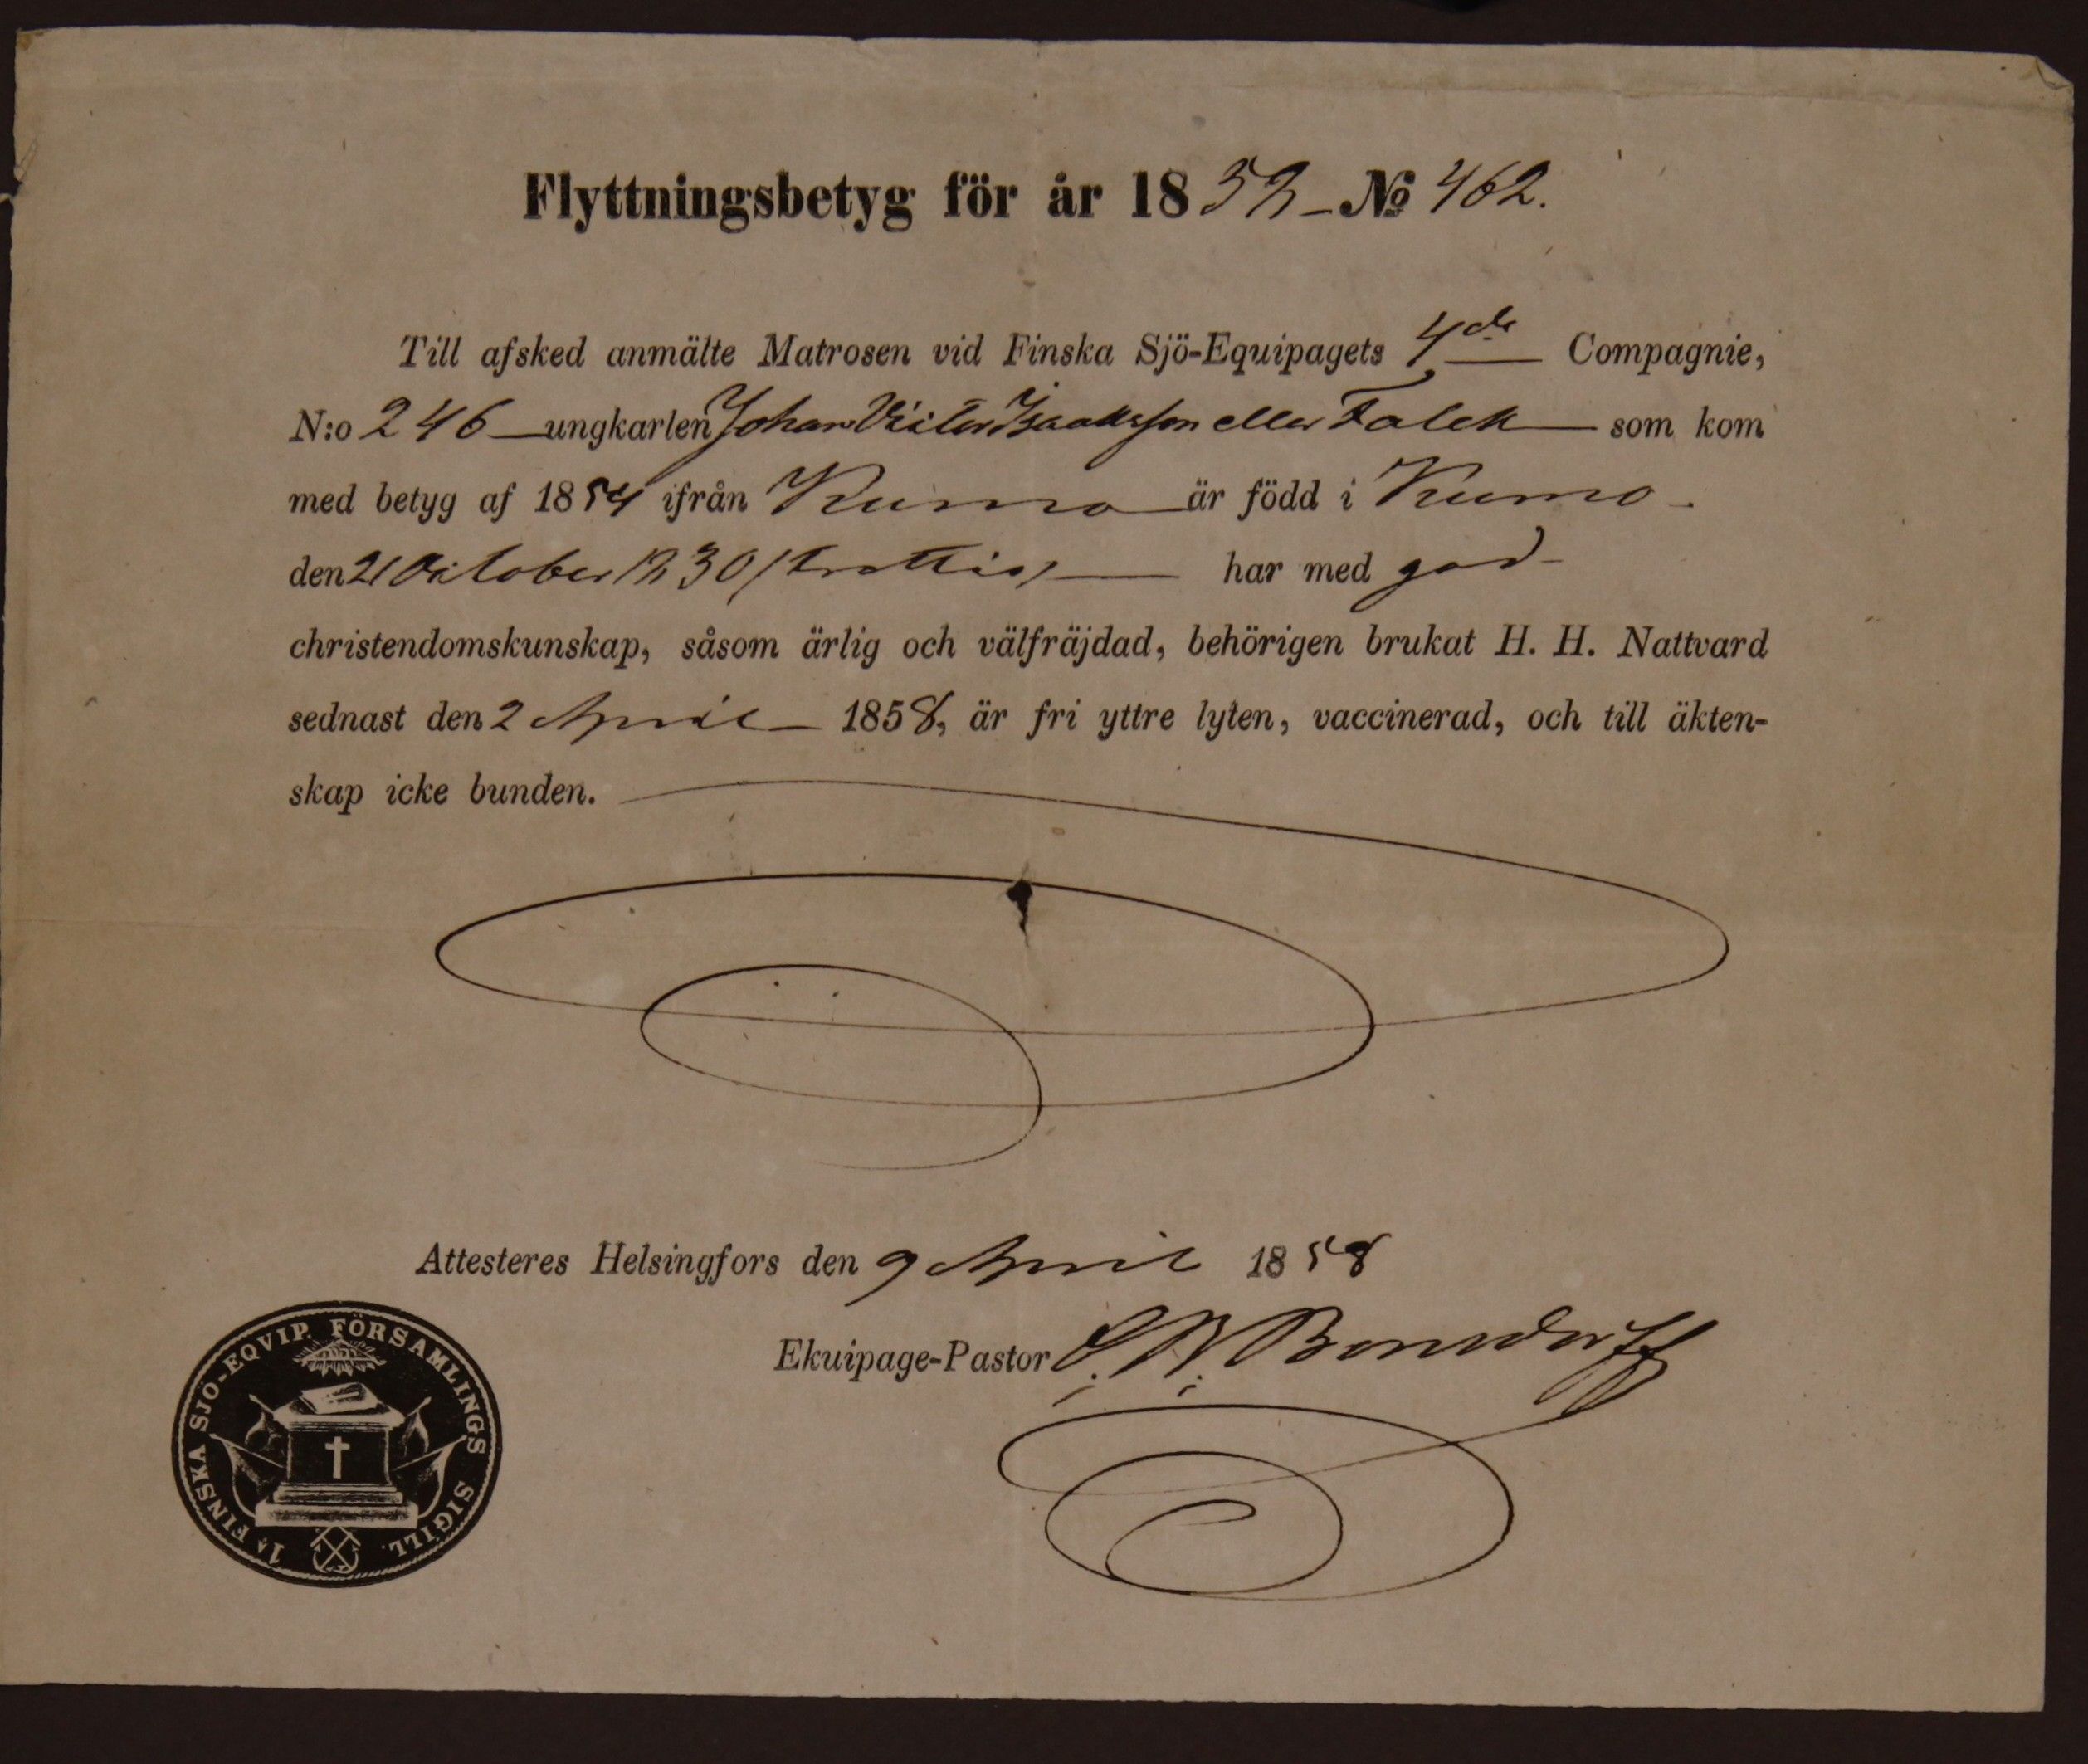 Flyttningsbetyg för år 1858 - No 462.
Till afsked anmälte Matrosen vid Finska Sjö-Equipagets 4de Compagnie,
N:o 246 ungkarlen Johan Victor Isaaksson eller Falck som kom
med betyg af 1854 ifrån Kumo är född i Kumo
den 21 October 1830 (trettio) har med god
christendomskunskap, såsom ärlig och välfräjdad, behörigen brukat H. H. Nattvard
sednast den 2 April 1858, är fri yttre lyten, vaccinerad, och till äkten-
skap icke bunden.
Attesteres Helsingfors den 9 April 1858
Ekuipage-Pastor Bonsdorff
1A FINSKA SJÖ-EQVIP. FÖRSAMLINGS SIGILL.